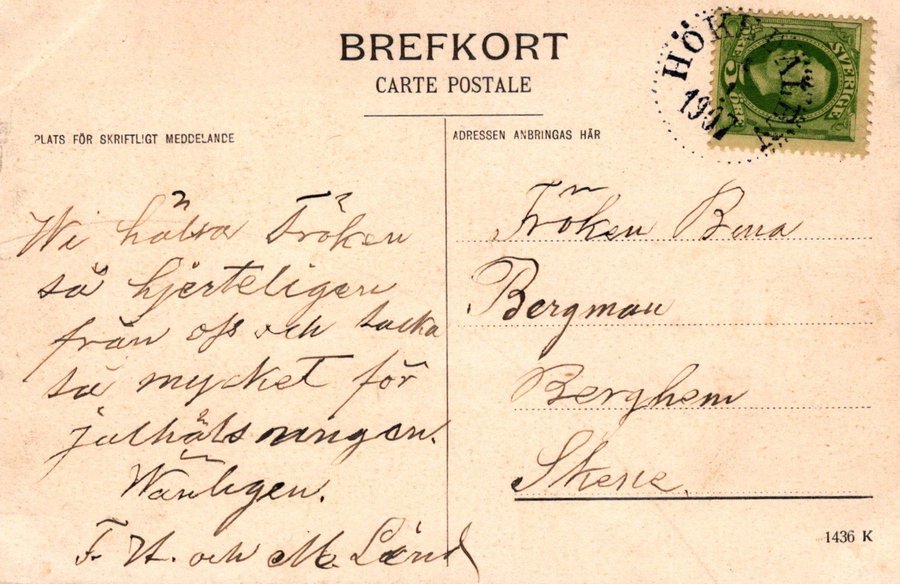 BREFKORT
CARTE POSTALE
PLATS FÖR SKRIFTLIGT MEDDELANDE
ADRESSEN ANBRINGAS HÄR
SVERIGE
5
ÖRE
1907
Wi hälsa Fröken
så hjerteligen
från oss och tacka
så mycket för
julhälsningen.
Wänligen.
F. A. och M. Lönd
Fröken Bina
Bergman
Berghem
Skene.
1436 K